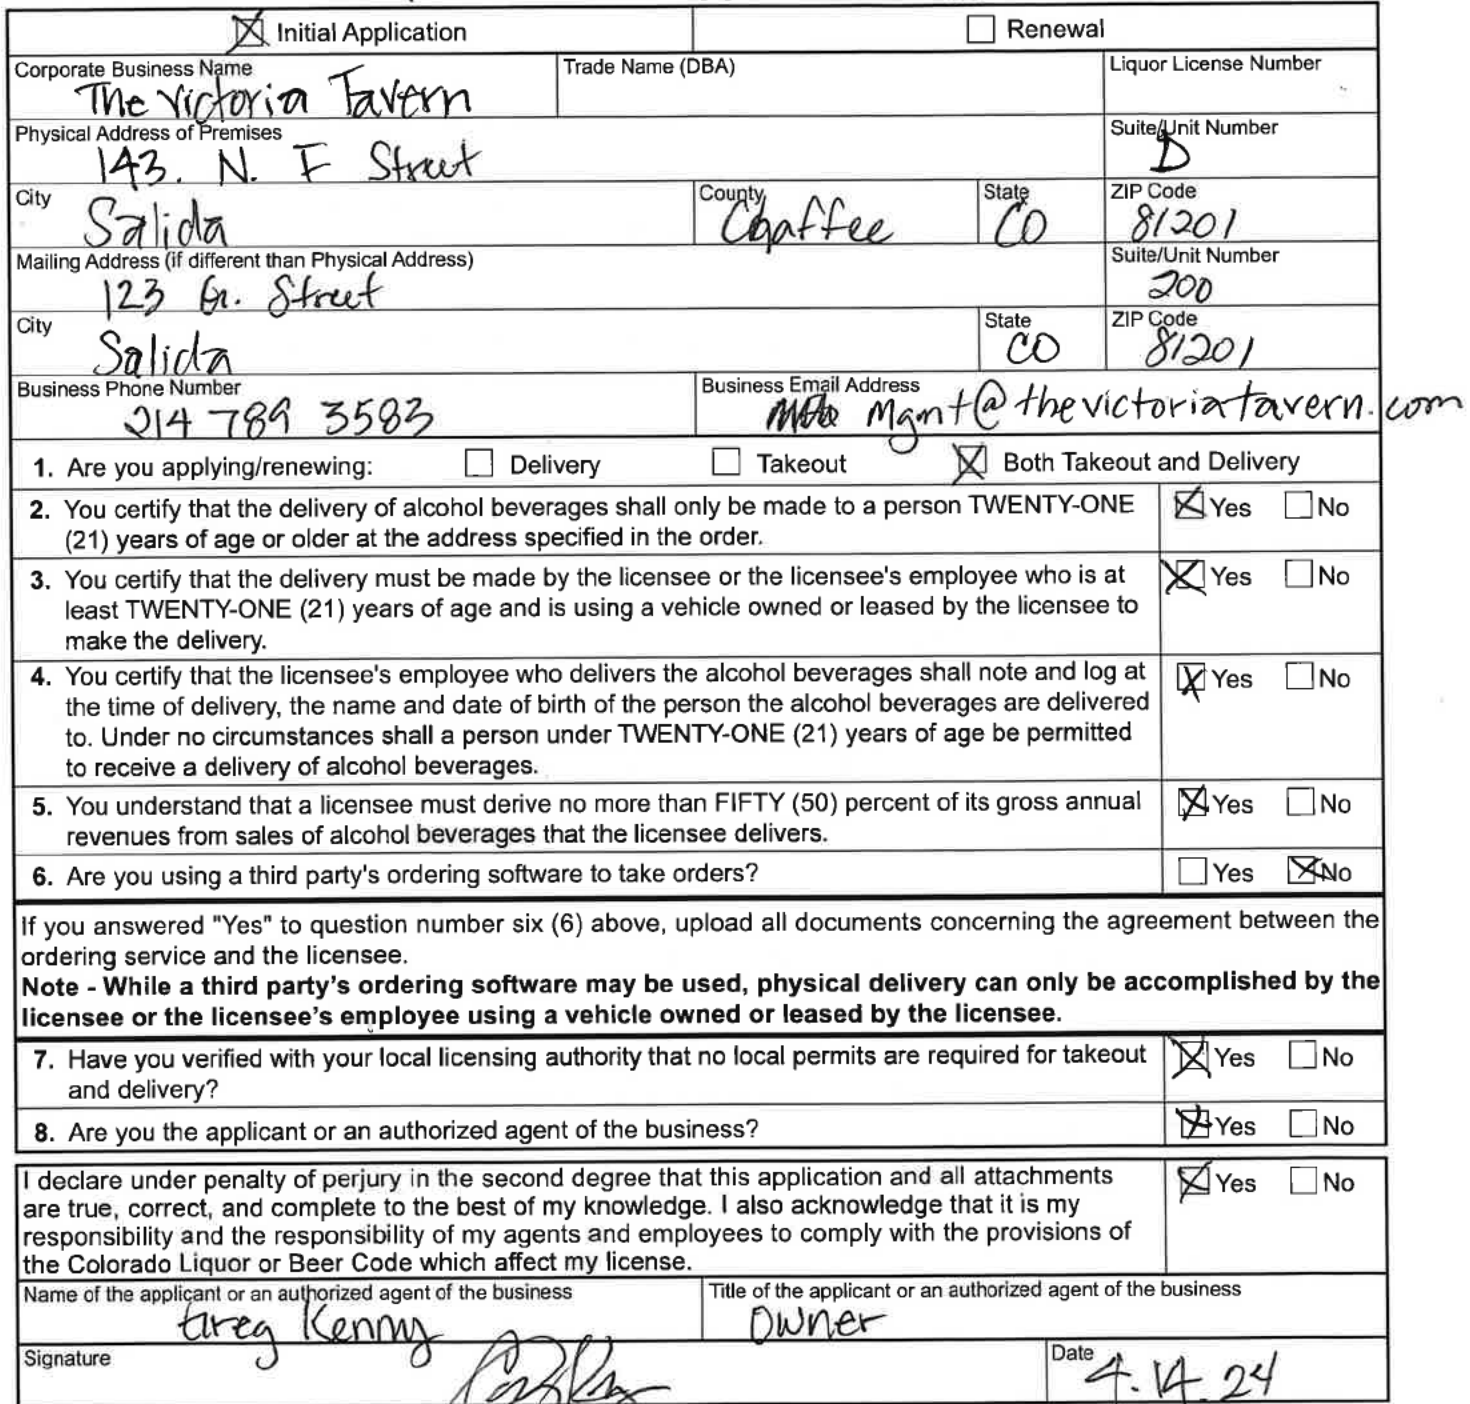 Initial Application Renewal
Corporate Business Name Trade Name (DBA) Liquor License Number
The Victoria Tavern
Physical Address of Premises Suite/Unit Number
143. N. F Street D
City County State ZIP Code
Salida Chaffee CO 81201
Mailing Address (if different than Physical Address) Suite/Unit Number
123 G. Street 200
City State ZIP Code
Salida CO 81201
Business Phone Number Business Email Address
214 789 3583 Mgmt@thevictoriatavern.com
1. Are you applying/renewing: Delivery Takeout Both Takeout and Delivery
2. You certify that the delivery of alcohol beverages shall only be made to a person TWENTY-ONE Yes No
(21) years of age or older at the address specified in the order.
3. You certify that the delivery must be made by the licensee or the licensee's employee who is at Yes No
least TWENTY-ONE (21) years of age and is using a vehicle owned or leased by the licensee to
make the delivery.
4. You certify that the licensee's employee who delivers the alcohol beverages shall note and log at Yes No
the time of delivery, the name and date of birth of the person the alcohol beverages are delivered
to. Under no circumstances shall a person under TWENTY-ONE (21) years of age be permitted
to receive a delivery of alcohol beverages.
5. You understand that a licensee must derive no more than FIFTY (50) percent of its gross annual Yes No
revenues from sales of alcohol beverages that the licensee delivers.
6. Are you using a third party's ordering software to take orders? Yes No
If you answered "Yes" to question number six (6) above, upload all documents concerning the agreement between the
ordering service and the licensee.
Note - While a third party's ordering software may be used, physical delivery can only be accomplished by the
licensee or the licensee's employee using a vehicle owned or leased by the licensee.
7. Have you verified with your local licensing authority that no local permits are required for takeout Yes No
and delivery?
8. Are you the applicant or an authorized agent of the business? Yes No
I declare under penalty of perjury in the second degree that this application and all attachments Yes No
are true, correct, and complete to the best of my knowledge. I also acknowledge that it is my
responsibility and the responsibility of my agents and employees to comply with the provisions of
the Colorado Liquor or Beer Code which affect my license.
Name of the applicant or an authorized agent of the business Title of the applicant or an authorized agent of the business
Greg Kenny Owner
Signature Date
4.14.24